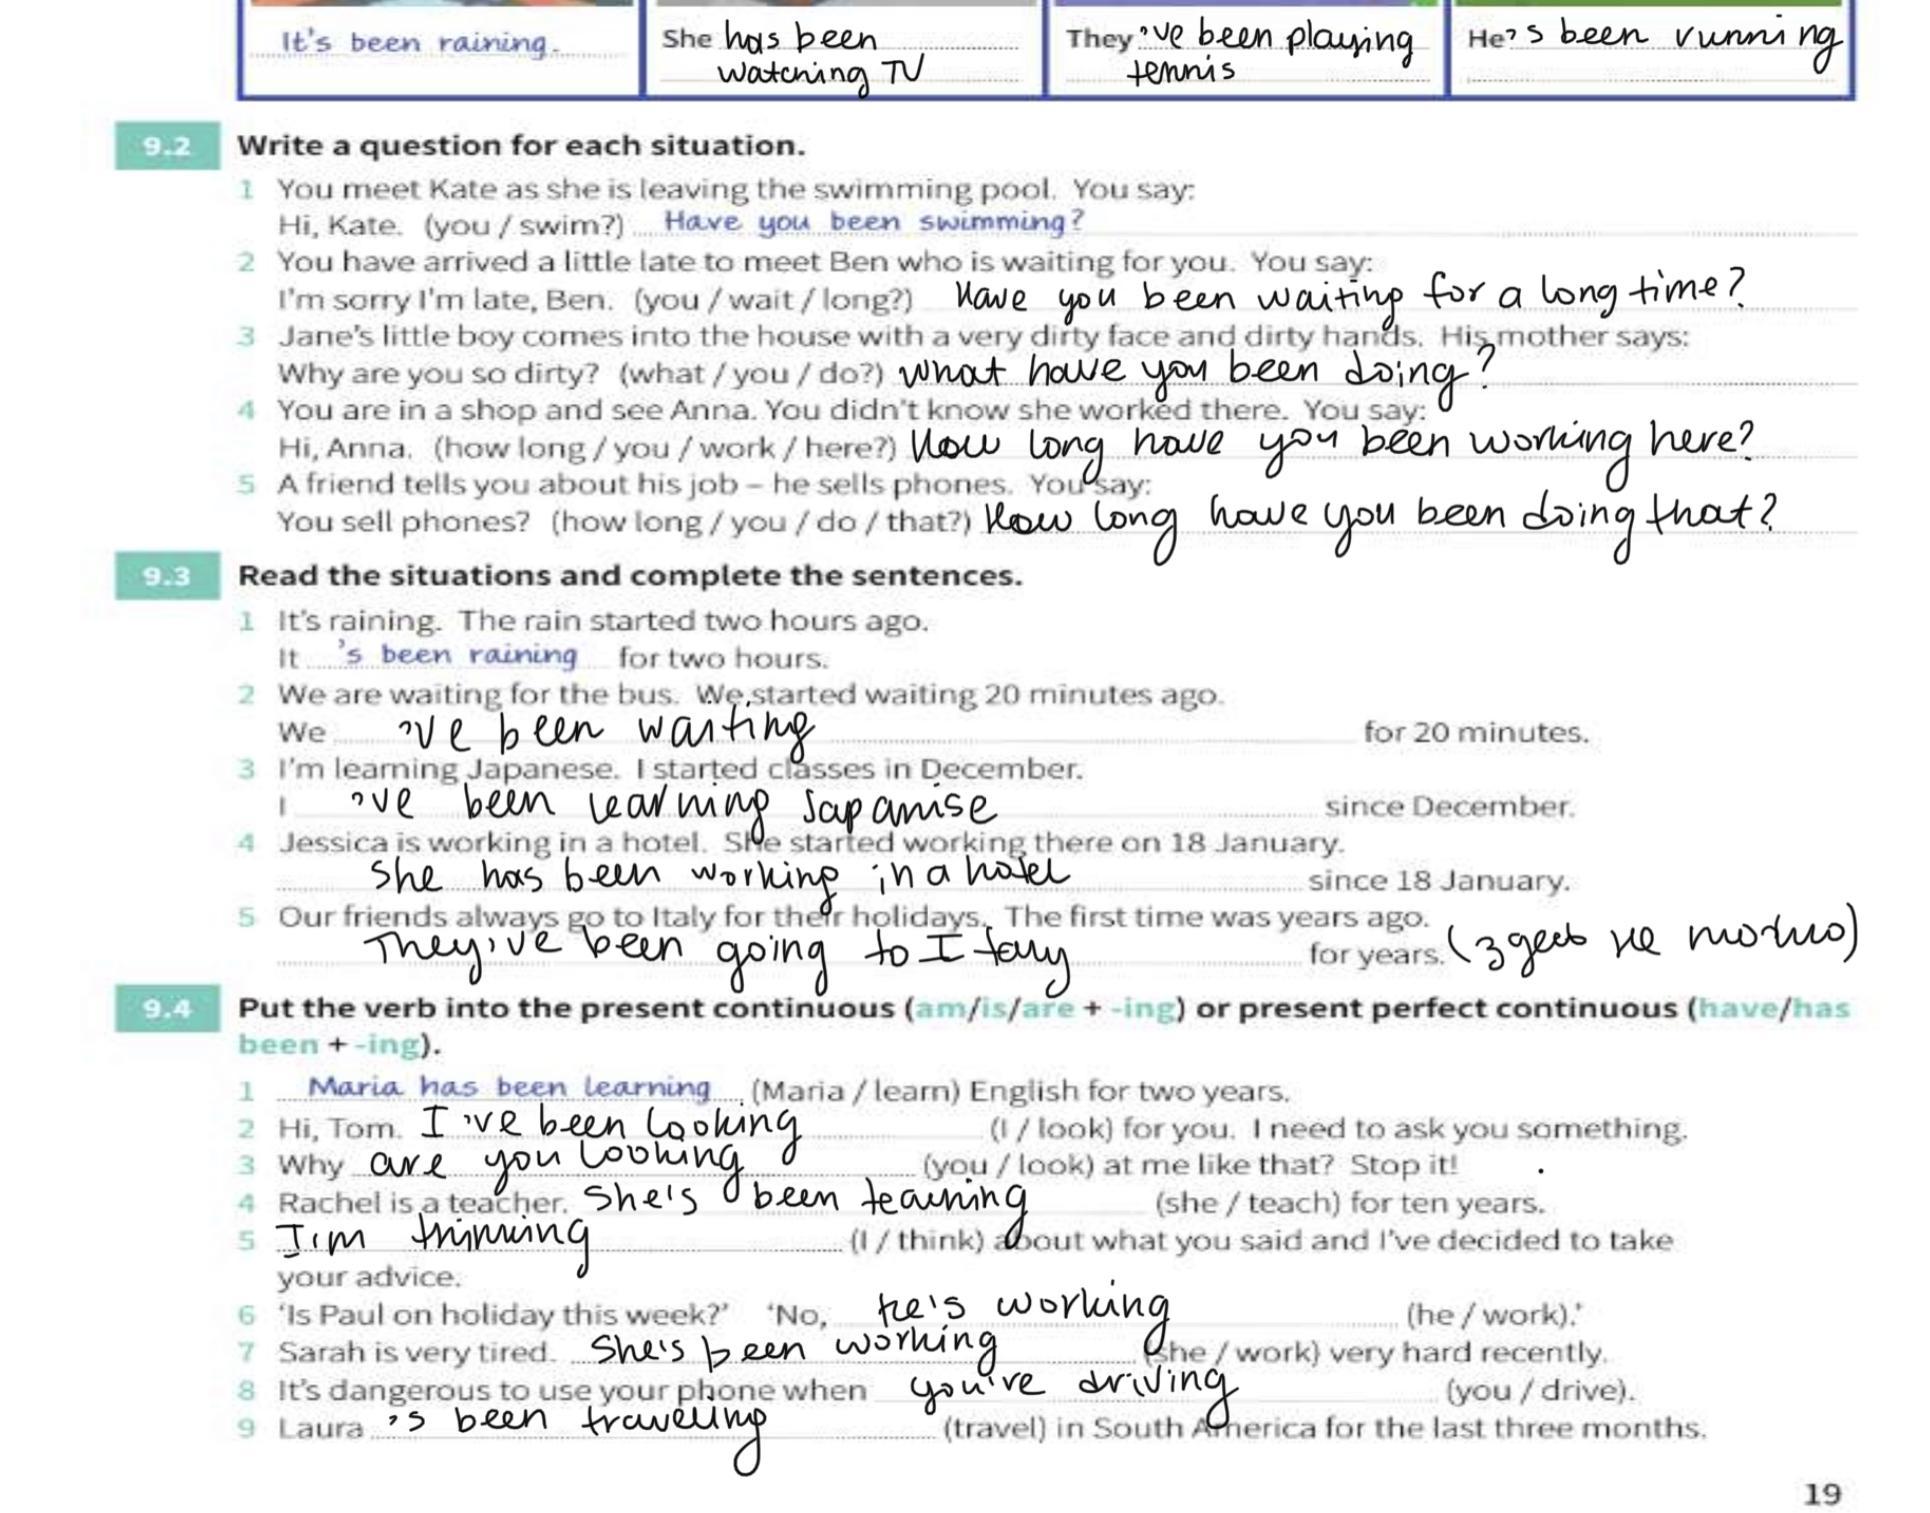 It's been raining.
She has been
watching TV
They 've been playing
tennis
He's been running
9.2 Write a question for each situation.
1 You meet Kate as she is leaving the swimming pool. You say:
Hi, Kate. (you / swim?) Have you been swimming?
2 You have arrived a little late to meet Ben who is waiting for you. You say:
I'm sorry I'm late, Ben. (you / wait / long?) Have you been waiting for a long time?
3 Jane's little boy comes into the house with a very dirty face and dirty hands. His mother says:
Why are you so dirty? (what / you / do?) What have you been doing?
4 You are in a shop and see Anna. You didn't know she worked there. You say:
Hi, Anna. (how long / you / work / here?) How long have you been working here?
5 A friend tells you about his job – he sells phones. You say:
You sell phones? (how long / you / do / that?) How long have you been doing that?
9.3 Read the situations and complete the sentences.
1 It's raining. The rain started two hours ago.
It 's been raining for two hours.
2 We are waiting for the bus. We started waiting 20 minutes ago.
We 've been waiting for 20 minutes.
3 I'm learning Japanese. I started classes in December.
I 've been learning Japanise since December.
4 Jessica is working in a hotel. She started working there on 18 January.
She has been working in a hotel since 18 January.
5 Our friends always go to Italy for their holidays. The first time was years ago.
They've been going to Itauy for years. (здесь не можно)
9.4 Put the verb into the present continuous (am/is/are + -ing) or present perfect continuous (have/has
been + -ing).
1 Maria has been learning (Maria / learn) English for two years.
2 Hi, Tom. I 've been looking (I / look) for you. I need to ask you something.
3 Why are you looking (you / look) at me like that? Stop it!
4 Rachel is a teacher. She's been teaching (she / teach) for ten years.
5 I'm thinking (I / think) about what you said and I've decided to take
your advice.
6 'Is Paul on holiday this week?' 'No, he's working (he / work).'
7 Sarah is very tired. She's been working (she / work) very hard recently.
8 It's dangerous to use your phone when you're driving (you / drive).
9 Laura 's been traveling (travel) in South America for the last three months.
19